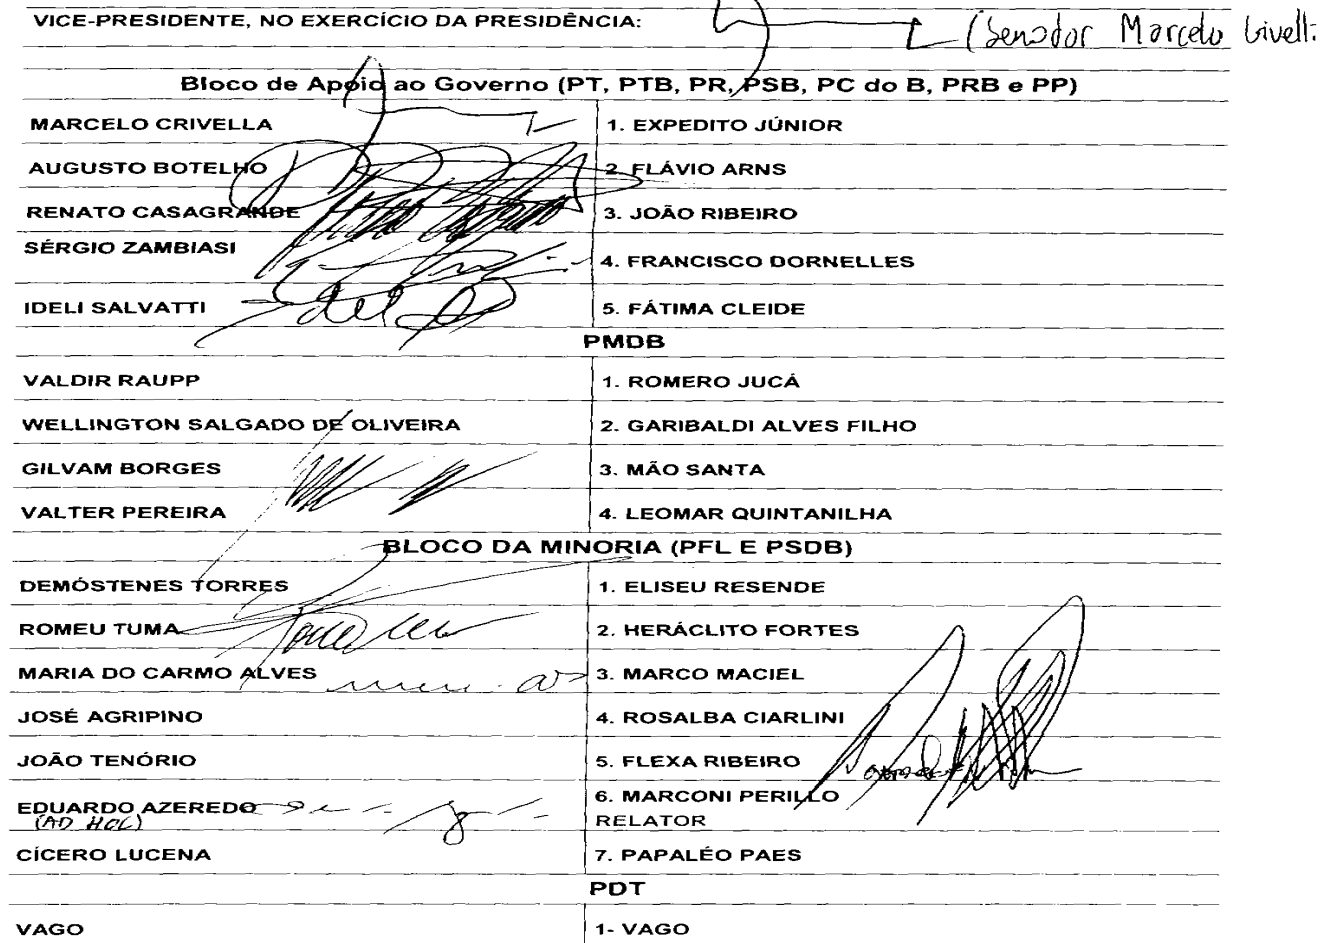 VICE-PRESIDENTE, NO EXERCÍCIO DA PRESIDÊNCIA: (Senador Marcelo
Bloco de Apoio ao Governo (PT, PTB, PR, PSB, PC do B, PRB e PP)
MARCELO CRIVELLA 1. EXPEDITO JÚNIOR
AUGUSTO BOTELHO 2. FLÁVIO ARNS
RENATO CASAGRANDE 3. JOÃO RIBEIRO
SÉRGIO ZAMBIASI 4. FRANCISCO DORNELLES
IDELI SALVATTI 5. FÁTIMA CLEIDE
PMDB
VALDIR RAUPP 1. ROMERO JUCÁ
WELLINGTON SALGADO DE OLIVEIRA 2. GARIBALDI ALVES FILHO
GILVAM BORGES 3. MÃO SANTA
VALTER PEREIRA 4. LEOMAR QUINTANILHA
BLOCO DA MINORIA (PFL E PSDB)
DEMÓSTENES TORRES 1. ELISEU RESENDE
ROMEU TUMA 2. HERÁCLITO FORTES
MARIA DO CARMO ALVES 3. MARCO MACIEL
JOSÉ AGRIPINO 4. ROSALBA CIARLINI
JOÃO TENÓRIO 5. FLEXA RIBEIRO
EDUARDO AZEREDO 6. MARCONI PERILLO
(AD HOC) RELATOR
CÍCERO LUCENA 7. PAPALÉO PAES
PDT
VAGO 1- VAGO